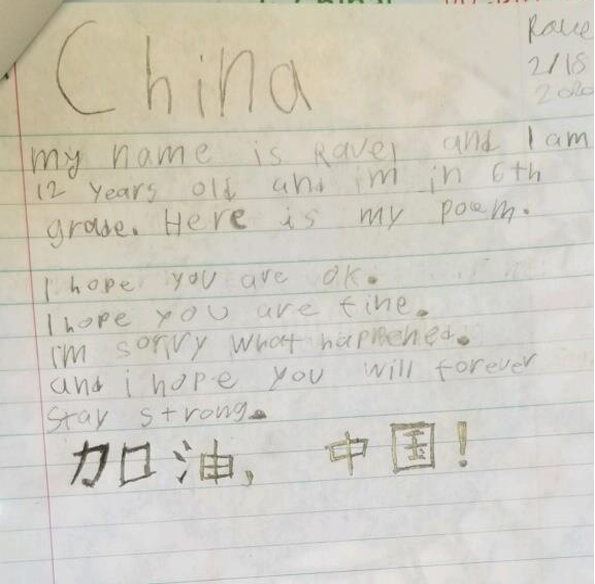 China
Rave
2/18
2020
my name is Ravel and I am
12 years old and im in 6th
grade. Here is my poem.
I hope you are ok.
I hope you are fine.
I'm sorry what happened.
and i hope you will forever
stay strong.
加油, 中国!